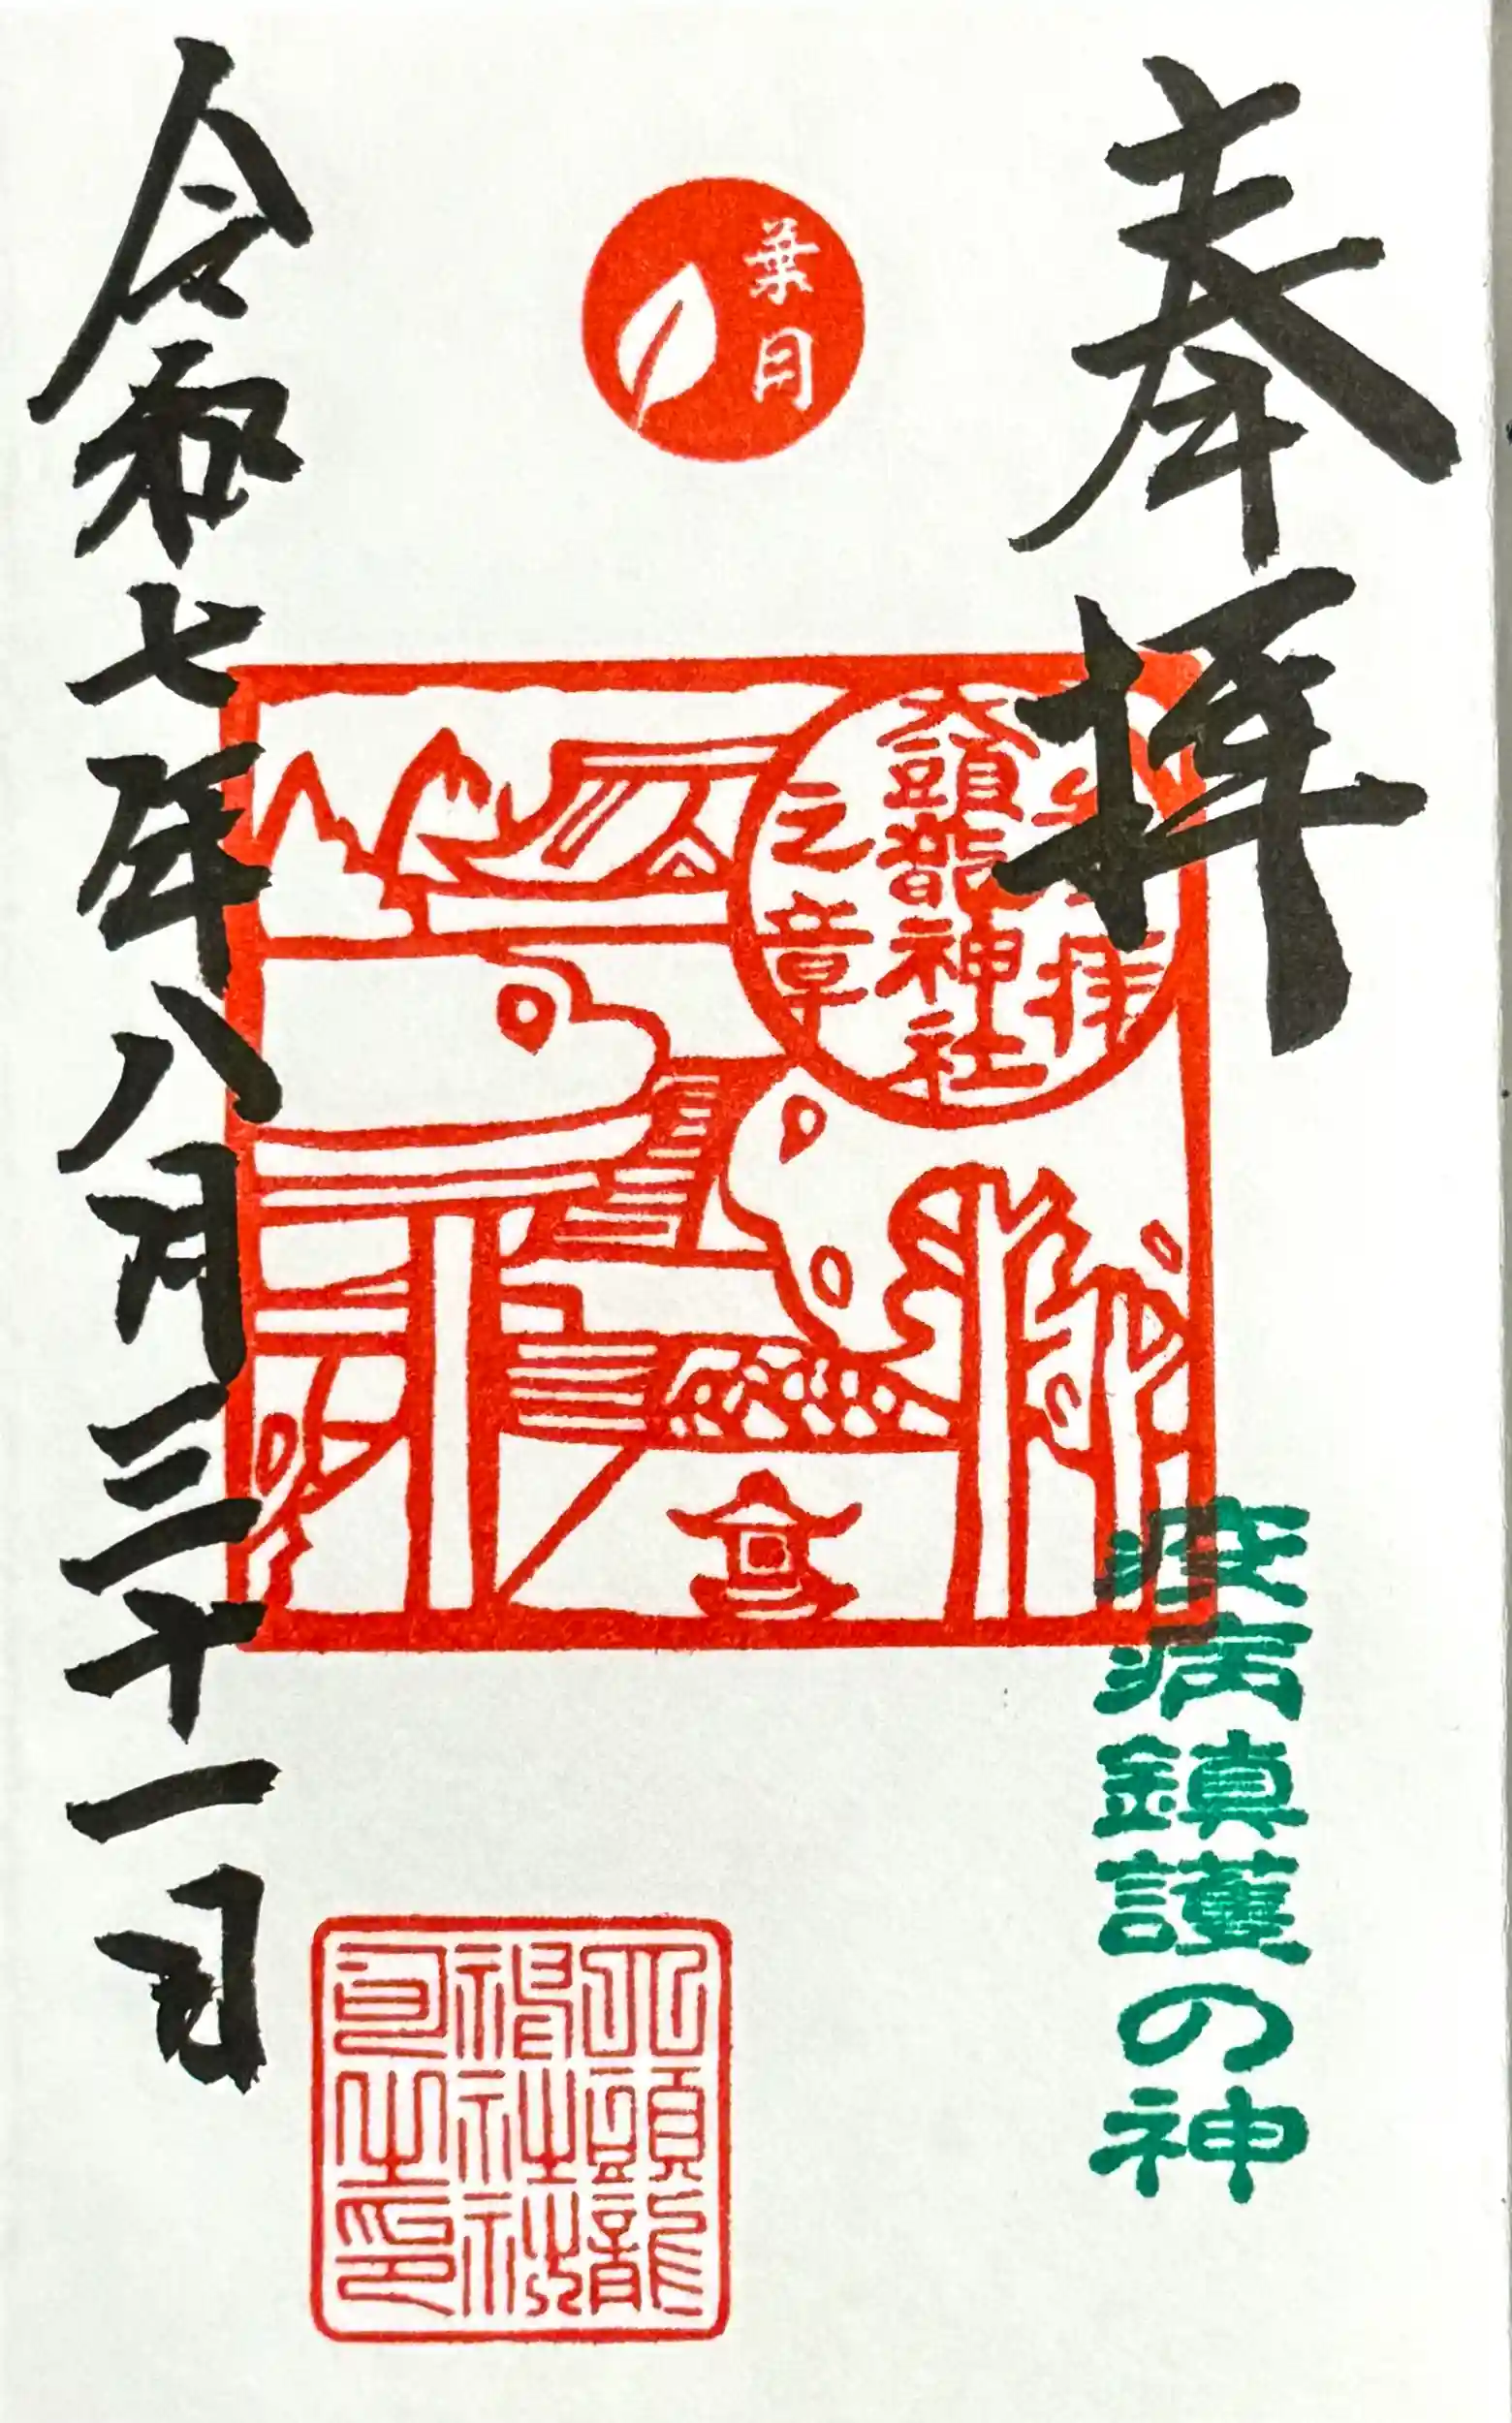 奉拝
疫病鎮護の神
葉月
拝
大頭龍神社
之章
大頭龍
神社
之印
令和七年八月三十一日